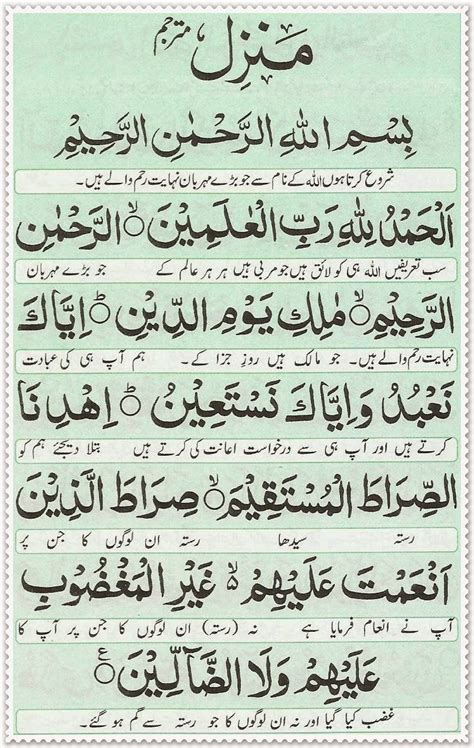 منزل مترجم
بِسْمِ اللهِ الرَّحْمٰنِ الرَّحِيْمِ
شروع کرتا ہوں اللہ کے نام سے جو بڑے مہربان نہایت رحم والے ہیں۔
اَلْحَمْدُ لِلّٰهِ رَبِّ الْعٰلَمِيْنَ ۙ الرَّحْمٰنِ
سب تعریفیں اللہ ہی کو لائق ہیں جو مربی ہیں ہر ہر عالم کے جو بڑے مہربان
الرَّحِيْمِ ۙ مٰلِكِ يَوْمِ الدِّيْنِ ؕ اِيَّاكَ
نہایت رحم والے ہیں۔ جو مالک ہیں روز جزا کے۔ ہم آپ ہی کی عبادت
نَعْبُدُ وَاِيَّاكَ نَسْتَعِيْنُ ؕ اِهْدِنَا
کرتے ہیں اور آپ ہی سے درخواست اعانت کی کرتے ہیں بتلا دیجئے ہم کو
الصِّرَاطَ الْمُسْتَقِيْمَ ۙ صِرَاطَ الَّذِيْنَ
رستہ سیدھا رستہ ان لوگوں کا جن پر
اَنْعَمْتَ عَلَيْهِمْ ۙ غَيْرِ الْمَغْضُوْبِ
آپ نے انعام فرمایا ہے نہ (رستہ) ان لوگوں کا جن پر آپ کا
عَلَيْهِمْ وَلَا الضَّآلِّيْنَ ۠
غضب کیا گیا اور نہ ان لوگوں کا جو رستہ سے گم ہو گئے۔